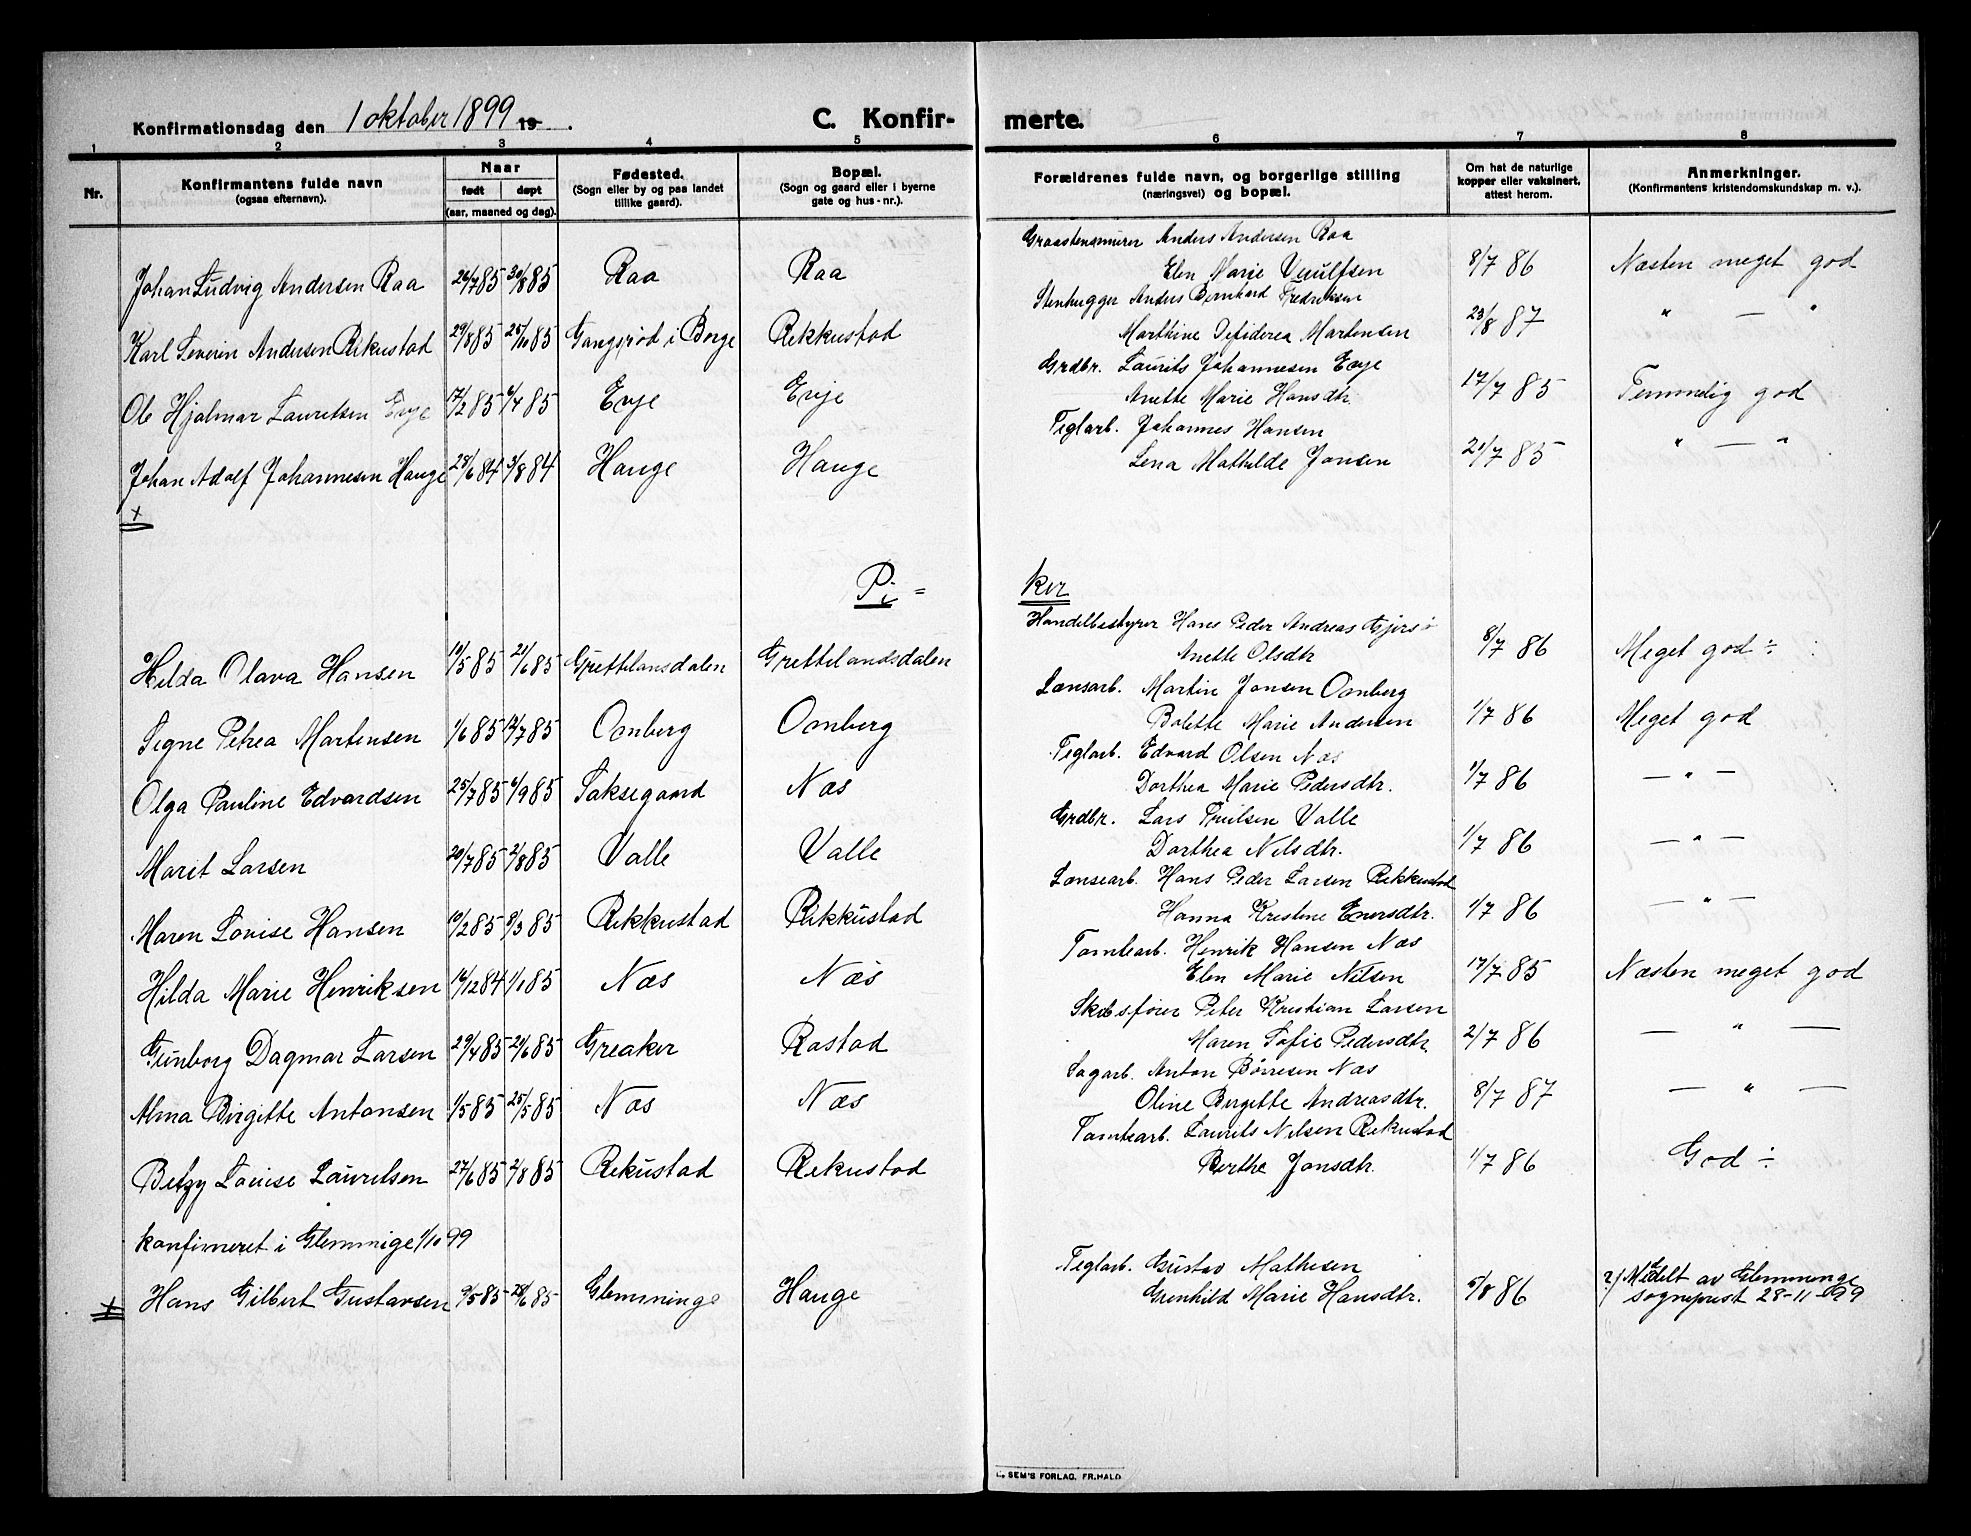 Konfirmationsdag den 1 oktober 1899 19 .
C. Konfir- merte.
1 2 3 4 5 6 7 8
Nr.
Konfirmantens fulde navn
(ogsaa efternavn).
Naar
født døpt
(aar, maaned og dag).
Fødested.
(Sogn eller by og paa landet
tillike gaard).
Bopæl.
(Sogn og gaard eller i byerne
gate og hus-nr.).
Forældrenes fulde navn, og borgerlige stilling
(næringsvei) og bopæl.
Om hat de naturlige
kopper eller vaksinert,
attest herom.
Anmerkninger.
(Konfirmantens kristendomskundskap m. v.).
Graastensmurer Anders Andersen Raa
Johan Ludvig Andersen Raa 26/7 85 30/8 85 Raa Raa Elen Marie 8/7 86 Næsten meget god
Stenhugger Anders Bernhard Fredriksen
Karl Severin Andersen Rikustad 29/8 85 25/10 85 Gangsrød i Borge Rekkustad Marthine Desideria Martensen 23/8 87 " — "
Grdbr. Laurits Johannesen Evje
Ole Hjalmar Lauretsen Evje 17/2 85 6/4 85 Evje Evje Anette Marie Hansdtr. 17/7 85 Temmelig god
Teglarb. Johannes Hansen
Johan Adolf Johannesen Hauge 28/6 84 3/8 84 Hauge Hauge Lena Mathilde Jonsen 21/7 85 " — "
+
Pi = ker
Handelbestyrer Hans Peder Andreas
Hilda Olava Hansen 19/5 85 21/6 85 Grettelansdalen Grettelandsdalen Anette Olsdtr 8/7 86 Meget god ÷
Lænsarb. Martin Jonsen Omberg
Signe Petrea Martensen 1/6 85 12/7 85 Omberg Omberg Bolette Marie Andersen 1/7 86 Meget god
Teglarb. Edvard Olsen Næs
Olga Pauline Edvardsen 25/7 85 6/9 85 Saksegaard Næs Dorthea Marie Pedersdtr. 1/7 86 — " —
Grdbr. Lars Truilsen Valle
Marit Larsen 20/7 85 2/8 85 Valle Valle Dorthea Nilsdtr. 1/7 86 — " —
Lænsearb. Hans Peder Larsen Rekkustad
Maren Lovise Hansen 19/2 85 8/3 85 Rekkustad Rikkustad Hanna Kristine Enersdtr. 1/7 86 — " —
Tomtearb. Henrik Hansen Næs
Hilda Marie Henriksen 14/12 84 1/1 85 Næs Næs Elen Marie Nilsen 17/7 85 Næsten meget god
Skibsfører Peter Kristian Larsen
Gunborg Dagmar Larsen 29/4 85 21/6 85 Greaker Rostad Maren Sofie Pedersdtr. 2/7 86 — " —
Sagarb. Anton Børresen Næs
Alma Birgitte Antonsen 1/5 85 25/5 85 Næs Næs Oline Birgitte Andreasdtr. 8/7 87 — " —
Tomtearb. Laurits Nilsen Rekustad
Betzy Louise Lauretsen 27/6 85 2/8 85 Rekustad Rekustad Berthe Jonsdtr. 1/7 86 God ÷
konfirmeret i Glemminge 1/10 99
Teglarb. Gustav Mathisen
+ Hans Gilbert Gustavsen 9/5 85 28/6 85 Glemminge Hauge Gunhild Marie Hansdtr. 5/8 86 ?/ Meddelt av Glemminge
sogneprest 28-11-99
E. SEM'S FORLAG, FR.HALD